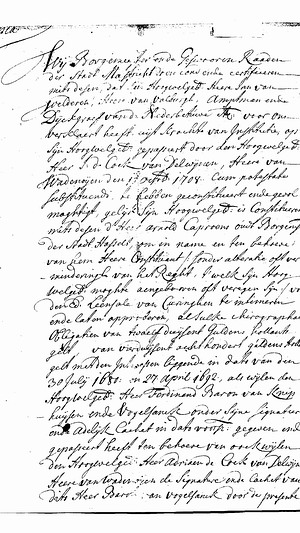 Wij Borgemeester ende Gesworen Raaden
der Stadt Maestricht doen cond ende certificeren
mits desen, dat den Hoogwelgeb. Heere Jan van
Welderen, Heere van Valburgh, Amptman ende
Dijckgraef van de Nederbetuwe &c voor ons
verclaert heeft, uijt Krachte van Institutie, op
Sijn Hoogwelgeb. gepasseert door den Hoogwelgeb.
Heer J. de Cock van Delwijnen, Heere van
Wadenoijen den 17 Octob. 1708. Cum potestate
substituendi, te hebben geconstitueert ende gevol
machtigt, gelijk Sijn Hoogwelgeb. is Constituerende
mits desen d'Heer Arnold Caproens oudt Borgem
der Stadt Hasselt, om in name en ten behoeve
van hem Heere Constituant
van het Reght, 't welk Sijn Hoog-
Welgeb. moghte aengeboren oft verregen sijn, voor
den Leensale van Curinghen te
ende laten approberen, alsulke chirographaire
Obligatien van twaelf duijsent guldens Hollants
gelt van viermijsent acht hondert guldens Holl.
gelt met den Interessen loopende in dato van den
30 Julij 1681. en 27 April 1692, als wijlen den
Hoogwelgeb. Heer Ferdinand Baron van Knip
huijsen ende Vogelsanck onder sijne signature
ende Adelijk Cachet in dato voors. gegeven ende
gepasseert heeft ten behoeve van oock wijlen
den Hoogwelgeb. Heer Adriaen de Cock van Delwijnen
Heere van Wadenoijen de signature ende Cachet van
Heer Baron van Vogelsanck door de presente